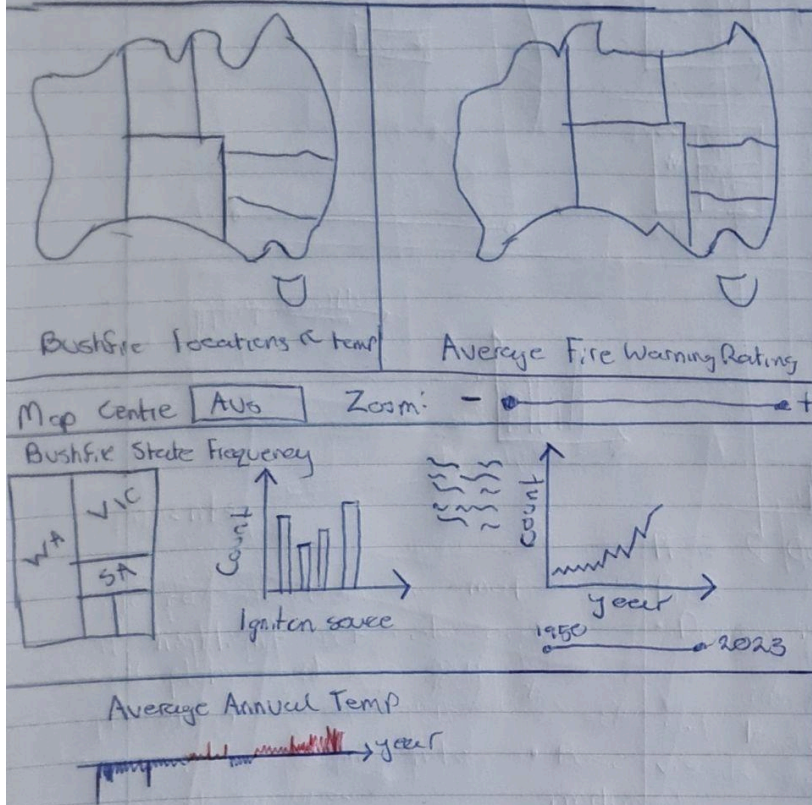 Bushfire locations & temp
Average Fire Warning Rating
Map Centre AUS Zoom: - +
Bushfire State Frequency
WA
VIC
SA
Count
Ignition source
Count
year
1950
2023
Average Annual Temp
year